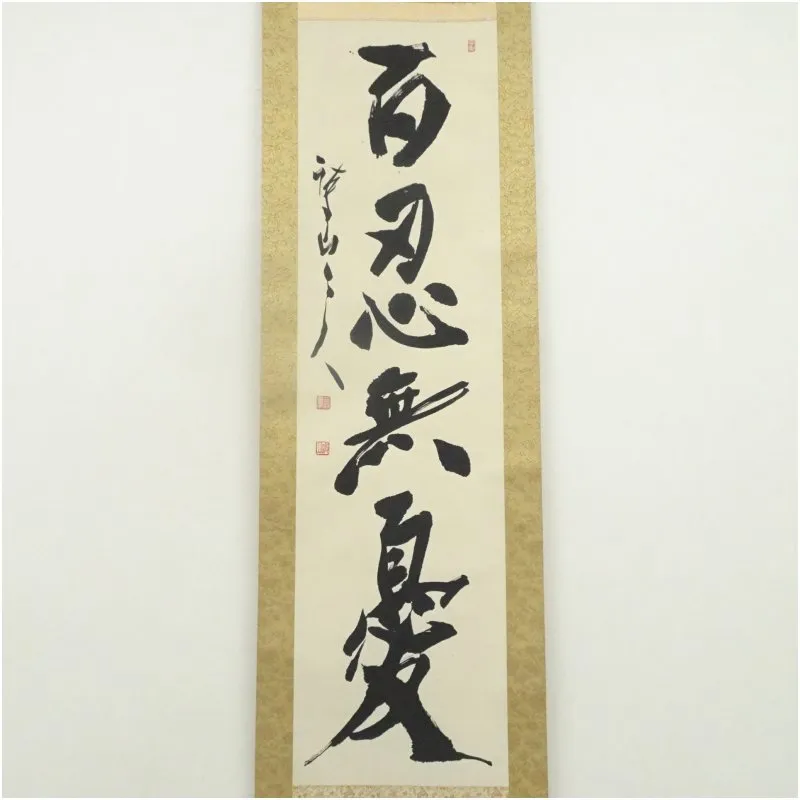 百忍無憂